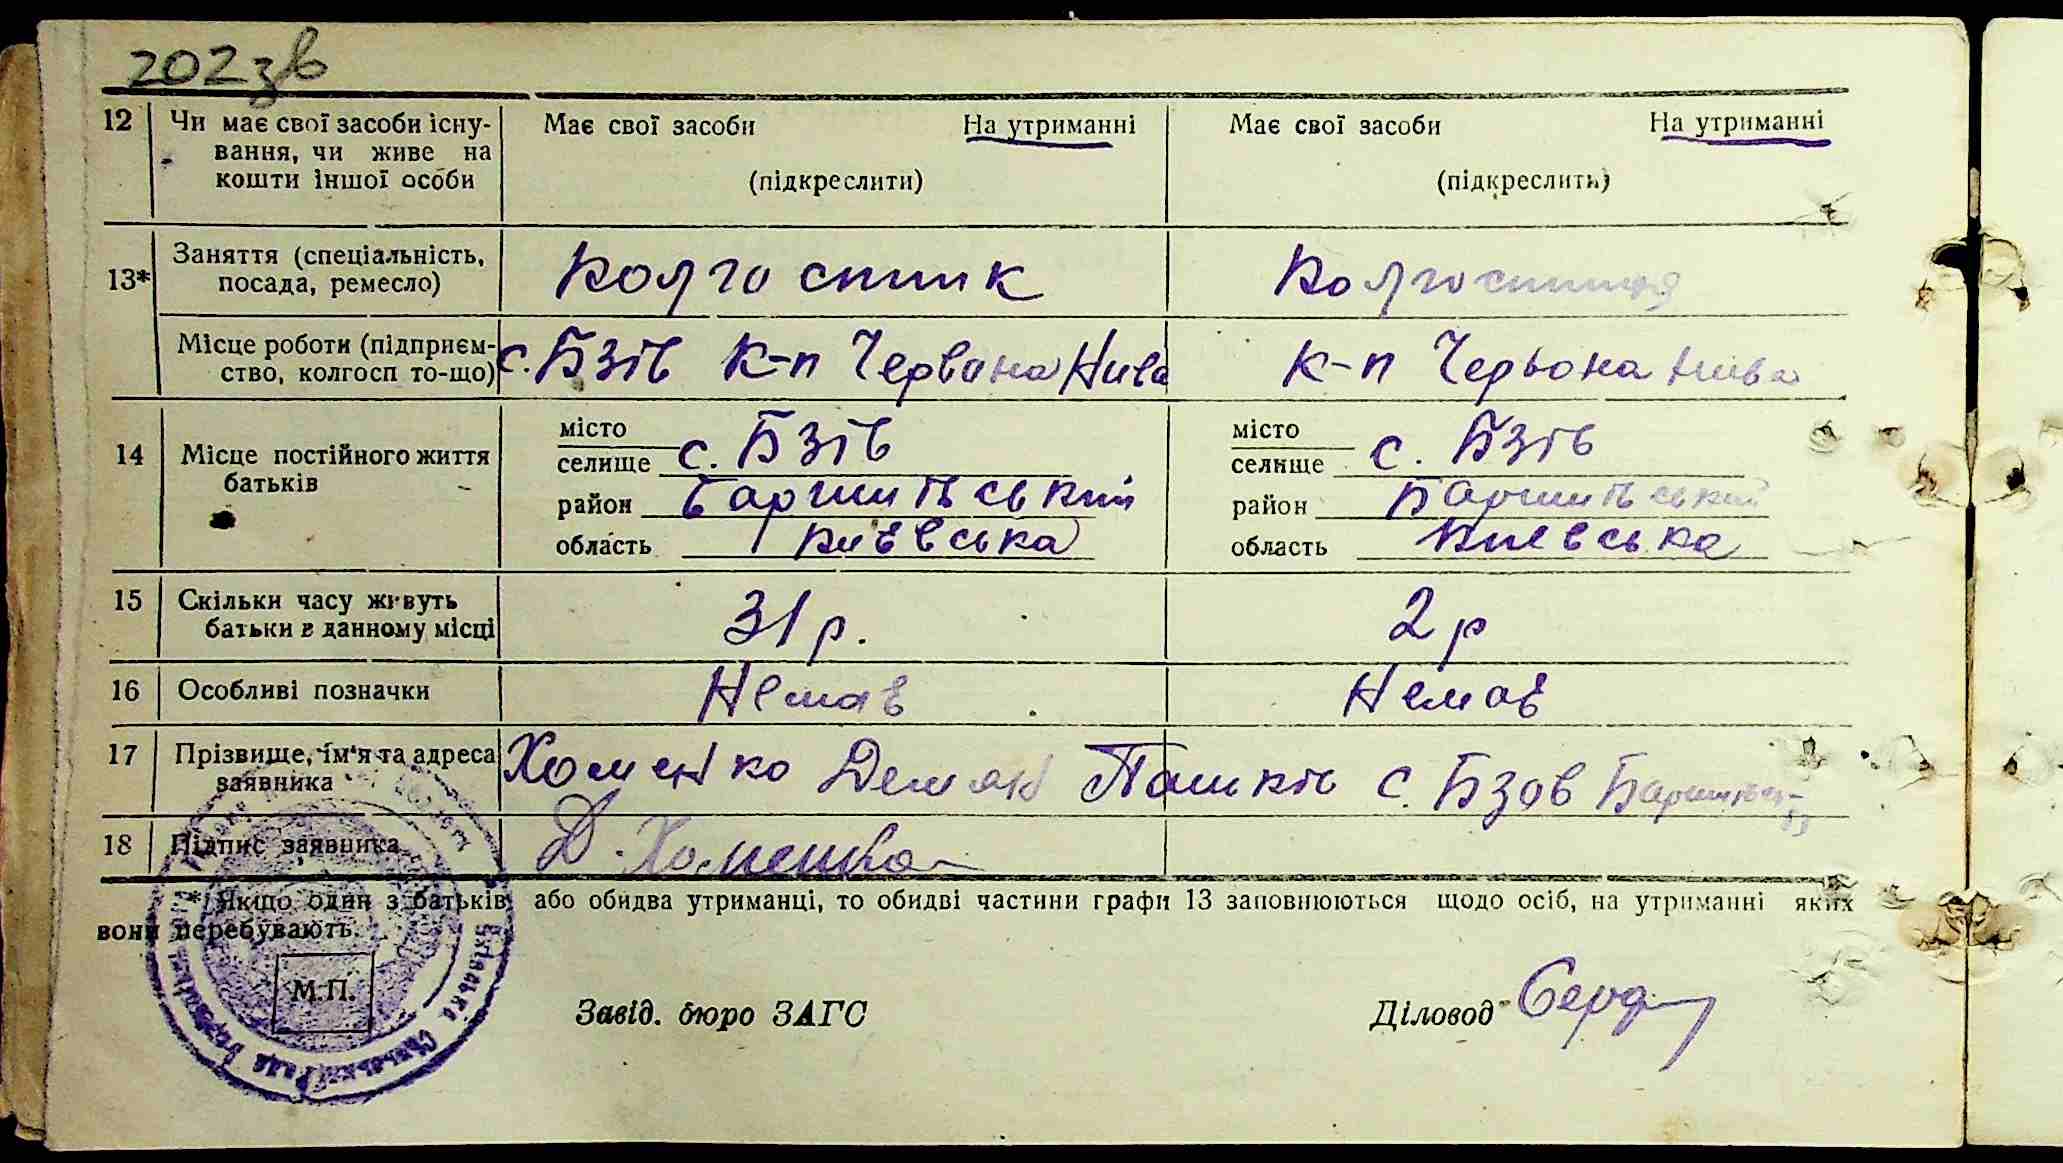 202зв
12 Чи має свої засоби існу- Має свої засоби На утриманні Має свої засоби На утриманні
вання, чи живе на
кошти іншої особи (підкреслити) (підкреслить)
13* Заняття (спеціальність, Колгоспник Колгоспниця
посада, ремесло)
Місце роботи (підприєм- с. Бзів к-п Червона Нива к-п Червона Нива
ство, колгосп то-що)
14 Місце постійного життя місто місто
батьків селище с. Бзів селище с. Бзів
район Баришівський район Баришівський
область Київська область Київська
15 Скільки часу живуть 31 р. 2 р
батьки в данному місці
16 Особливі позначки Немає Немає
17 Прізвище, їм'я та адреса Хоменко Демян с. Бзов
заявника
18 Підпис заявника Д. Хоменко
* Якщо один з батьків або обидва утриманці, то обидві частини графи 13 заповнюються щодо осіб, на утриманні яких
вони перебувають.
М.П.
Завід. бюро ЗАГС Діловод